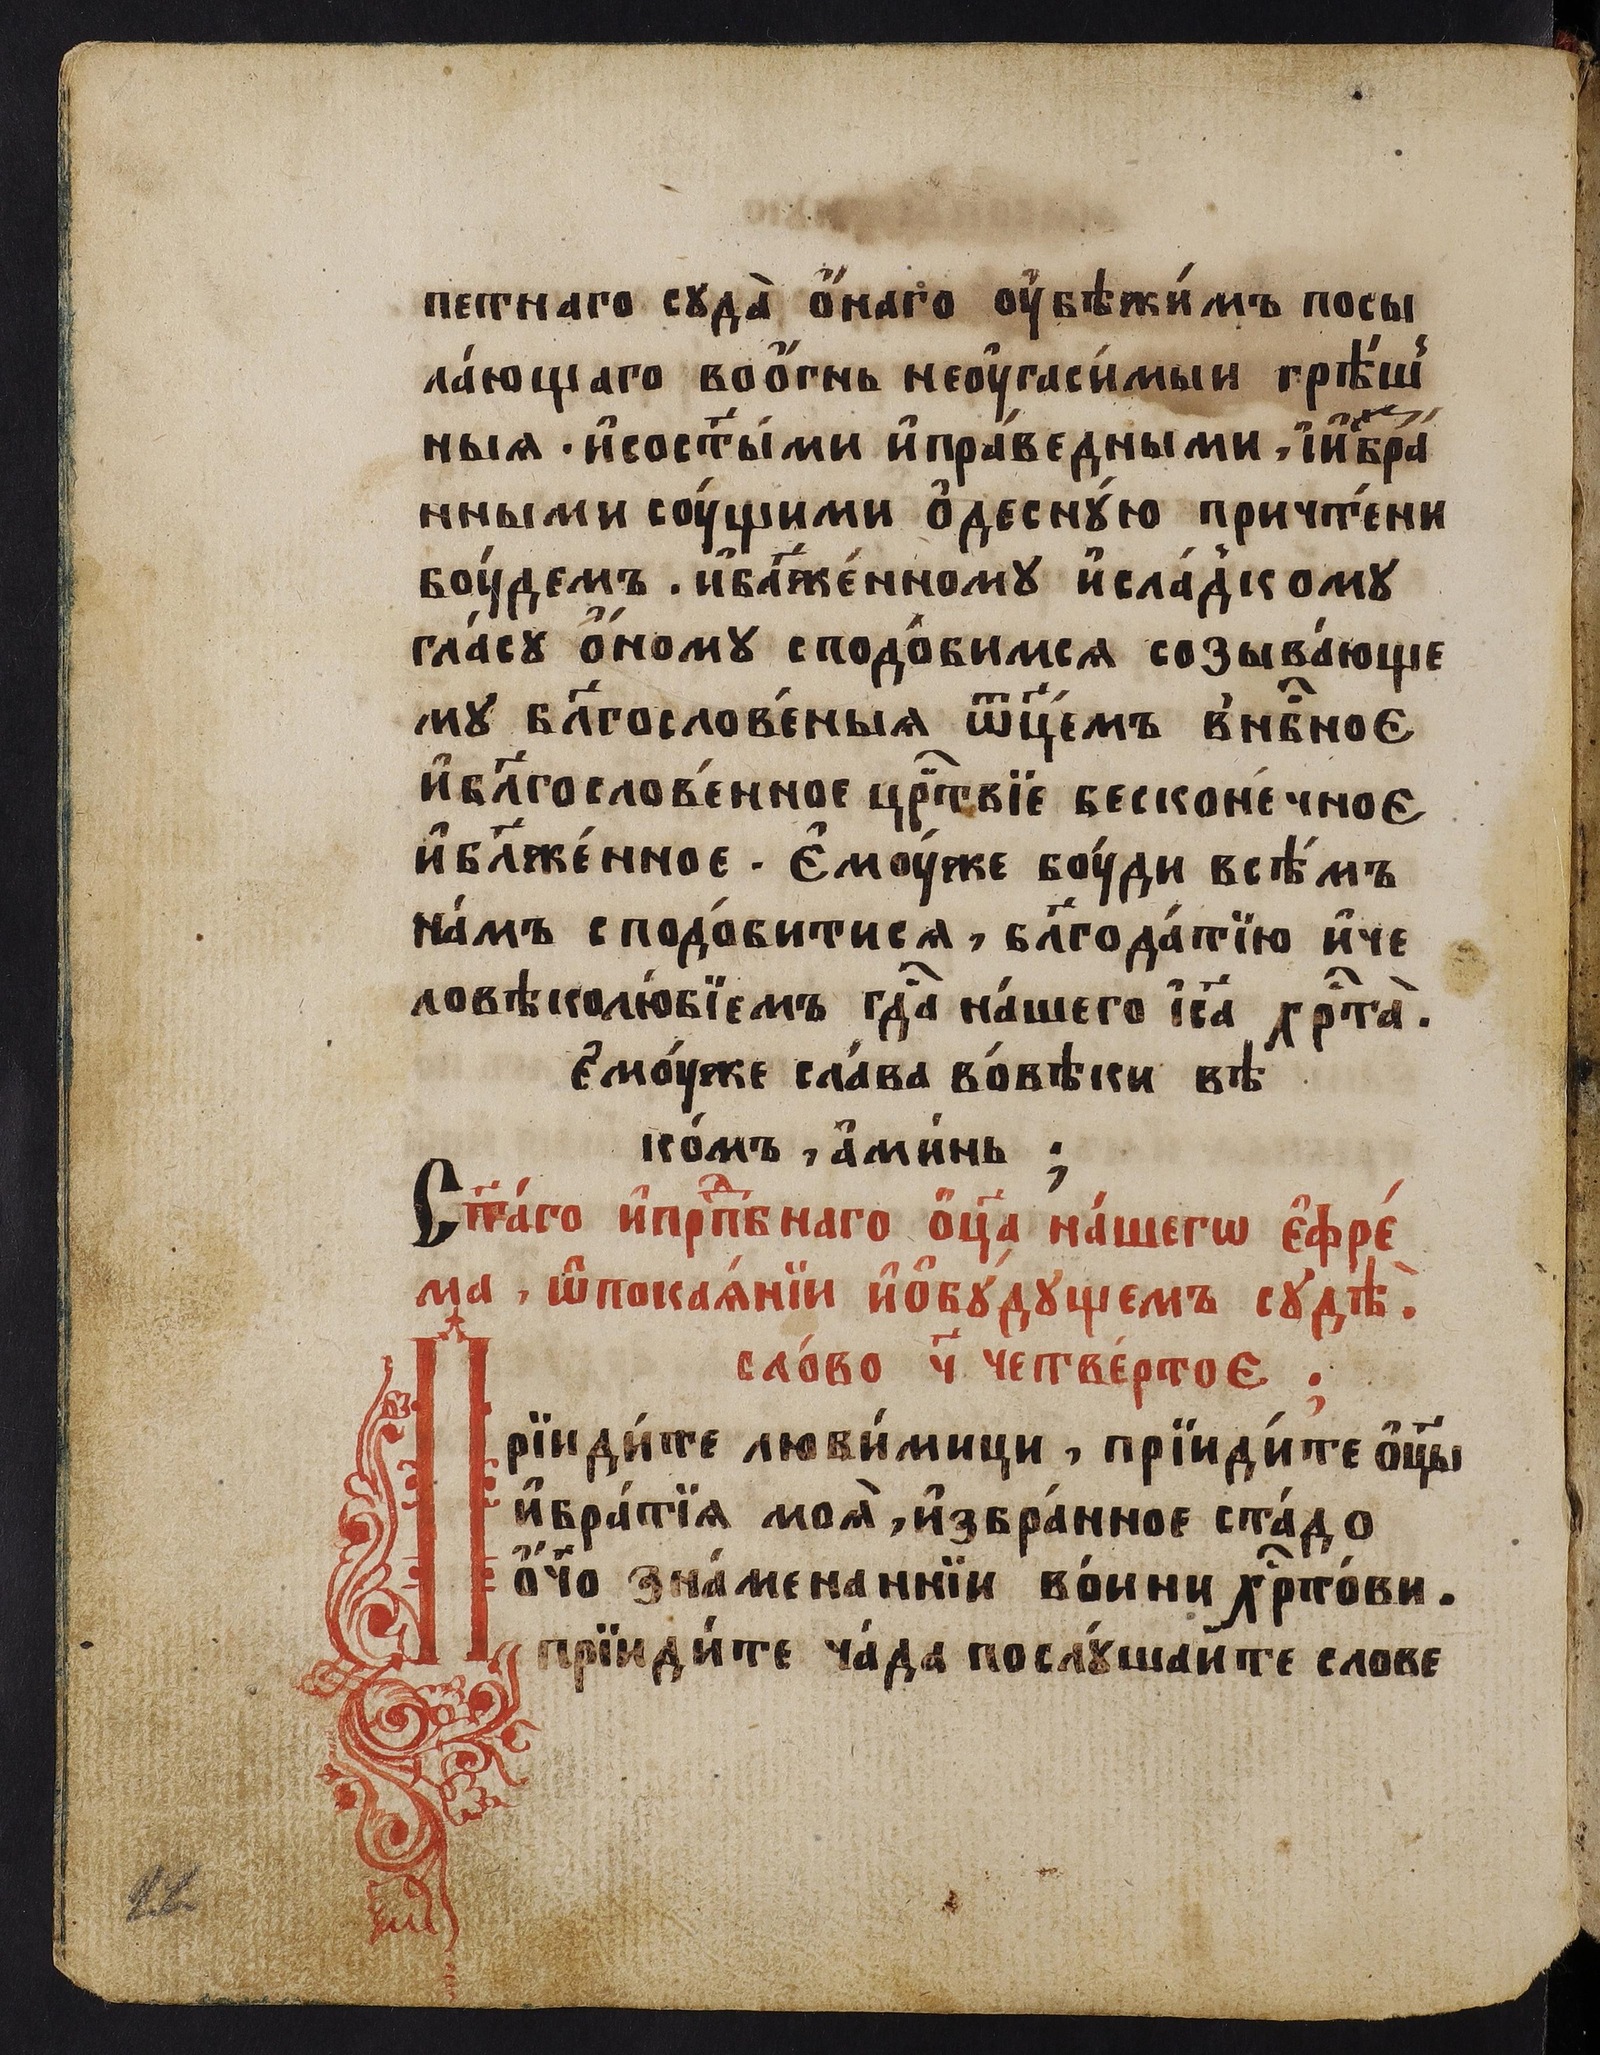 петнаго суда̀ ѻ҆́наго ᲂу҆бѣжи́мъ посы
ла́ющаго воѻ҆́гнь неᲂу҆гаси́мыи грѣ́ш
ныѧ . и҆сост҃ы́ми и҆пра́ведными , і҆и҆ꙁбра́
нными сꙋ́щими ѻ҆десну́ю причте́ни
бꙋ́демъ . и҆бл҃же́нному и҆сла́дкому
гла́су ѻ҆́ному сподо́бимсѧ созыва́юще
му бл҃гослове́ныѧ ѿц҃е́мъ внб҃ное
и҆бл҃гослове́нное црт҃вїе бесконе́чное
и҆бл҃же́нное . Е҆мꙋ́же бꙋ́ди всѣ́мъ
на́мъ сподо́битисѧ , бл҃года́тїю и҆че
ловѣколю́бїемъ гдⷭ҇а на́шего і҆с҃а хрⷭ҇та̀ .
Е҆мꙋ́же сла́ва во́вѣки вѣ
ко́мъ , а҆ми́нь ;
Ст҃а́го и҆прпⷣбнаго ѻ҆ц҃а̀ на́шегѡ е҆фре́
ма , ѡ҆покаѧ́нїи и҆ѻ҆бу́дущемъ судѣ̀ .
сло́во ч҃ четве́ртое ;
Прїиди́те люби́мици , прїиди́те ѻ҆ц҃ы
и҆бра́тїѧ моѧ̀ , и҆збра́нное ста́до
ѻ҆́ч҃о зна́менаннїи во́ини хрⷭ҇то́ви .
прїиди́те ча́да послу́шаите слове